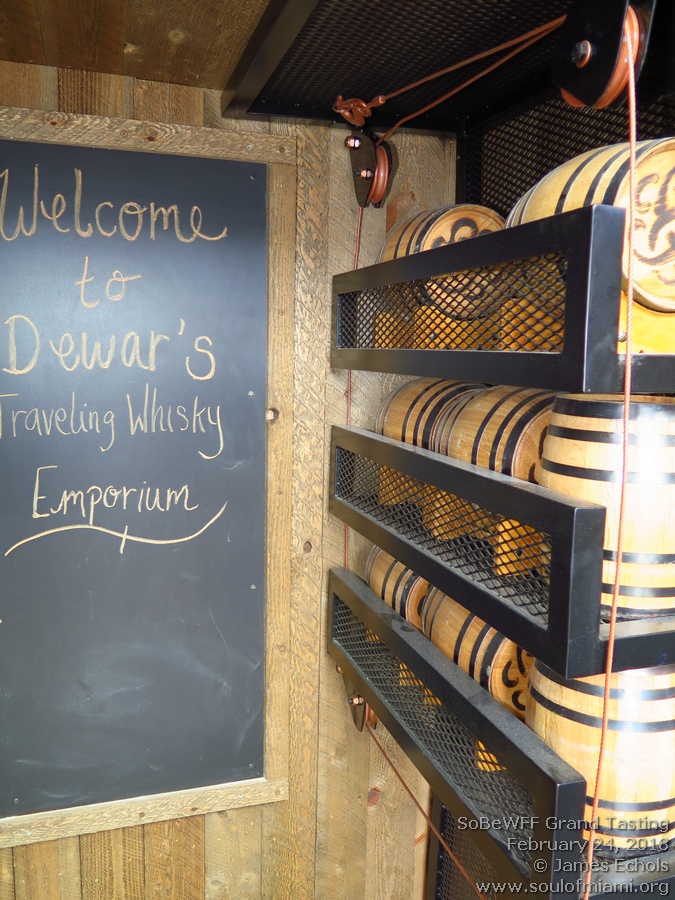 Welcome
to
Dewar's
Traveling Whisky
Emporium
SoBeWFF Grand Tasting
February 24, 2018
© James Echols
www.soulofmiami.org